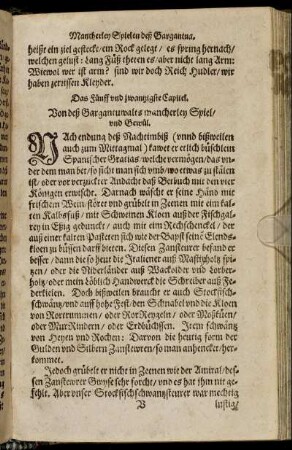 Mancherley Spielen deß Gargantua.
heißt ein ziel gesteckt / ein Rock gelegt / es spring hernach /
welchen gelust: Lang Füß theten es / aber nicht lang Arm:
Wiewol wer ist arm? sind wir doch Reich Hudler / wir
haben zerrissen Kleyder.
Das Fünff und zwantzigste Capitel.
Von deß Gargantuwales mancherley Spiel /
und Gewül.
NACH endung deß Nachtimbiß (vnnd bißweilen
auch zum Mittagmal) kawet er etlich büschlein
Spanischer Gratias / welche vermögen / das vn-
der dem man bet / so sicht man sich vmb / wo etwas zu stälen
ist / oder vor verzuckter Andacht daß Beiuch mit den vier
Königen erwische. Darnach wäscht er seine Händ mit
frischem Wein / störet und grübelt in Zeenen mit eim kal-
ten Kalbsfuß / mit Schweinen Kloen auß der Fischgal-
rey in Essig geduncket / auch mit eim Rechschenckel / der
auß einer kalten Pasteten sich mit der Bayß seins Elends-
kloen zu büssen darff bieten. Diesen Zanstewrer befand er
besser / dann die so heut die Italiener auß Mastigholtz spi-
tzen / oder die Niderländer auß Wackolder vnd Lorber-
holtz / oder mein Löblich Handwerck die Schreiber auß Fe-
derkielen. Doch bißweilen braucht er auch Stockfisch-
schwäntz / vnd auff hohe Fest / den Schnabel vnd die Kloen
von Rortrummen / oder Ror Reygeln / oder Moßküen /
oder Mur Rindern / oder Erdbüchssen. Item schwäntz
von Heyen vnd Rochen: Darvon die heutig form der
Gulden vnd Silbern Zanstewren / so man anhencket / her-
kommet.
Jedoch grübelt er nicht in Zeenen wie der Amiral / des-
sen Zanstewrer Guyse sehr forcht / vnd es hat ihm nit ge-
fehlt. Aber vnser Stockfischschwantzstewrer war mechtig
V
lustig /